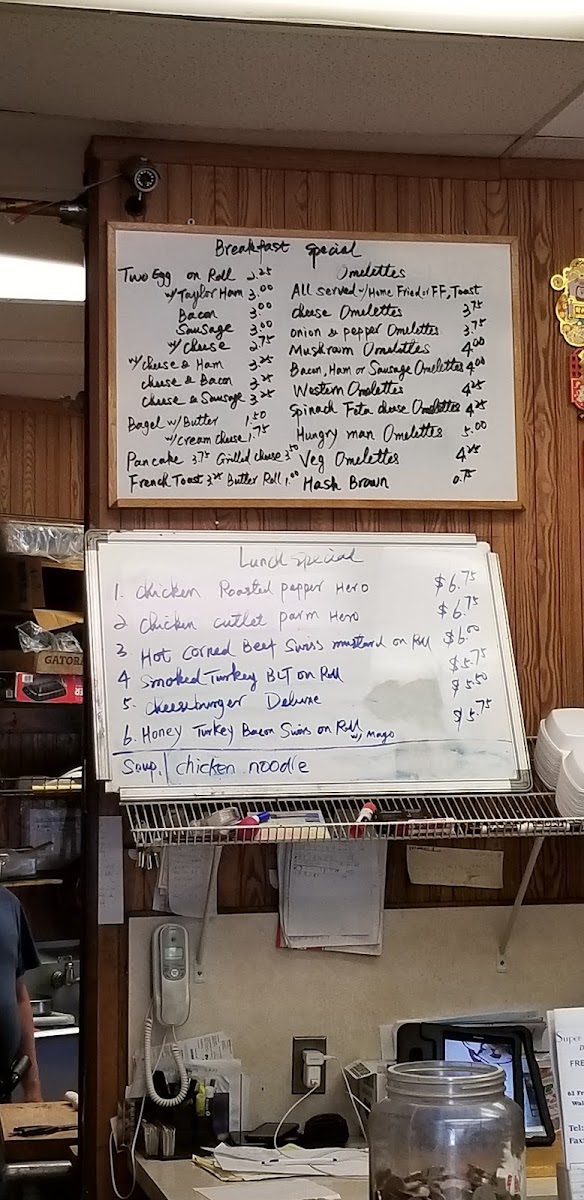 Breakfast Special
Two Egg on Roll 2.25
w/ Taylor Ham 3.00
Bacon 3.00
Sausage 3.00
w/ cheese 2.75
w/ cheese & Ham 3.25
cheese & Bacon 3.25
cheese & Sausage 3.25
Bagel w/ Butter 1.50
w/ cream cheese 1.75
Pancake 3.75 Grilled cheese 3.50
French Toast 3.25 Butter Roll 1.00
Omelettes
All served w/ Home Fried or FF, Toast
cheese Omelettes 3.75
onion & pepper Omelettes 3.75
Mushroom Omelettes 4.00
Bacon, Ham or Sausage Omelettes 4.00
Western Omelettes 4.25
Spinach Feta cheese Omelettes 4.25
Hungry man Omelettes 5.00
Veg Omelettes 4.25
Hash Brown 0.75
Lunch special
1. chicken Roasted pepper Hero $6.75
2 chicken cutlet parm Hero $6.75
3 Hot corned Beef Swiss mustard on Roll $6.00
4 smoked Turkey BLT on Roll $5.75
5. cheeseburger Deluxe $5.50
6. Honey Turkey Bacon Swiss on Roll w/ mayo $5.75
Soup. chicken noodle
GATOR
Super
FRE
61 Fr
Wal
Tel:
Fax: